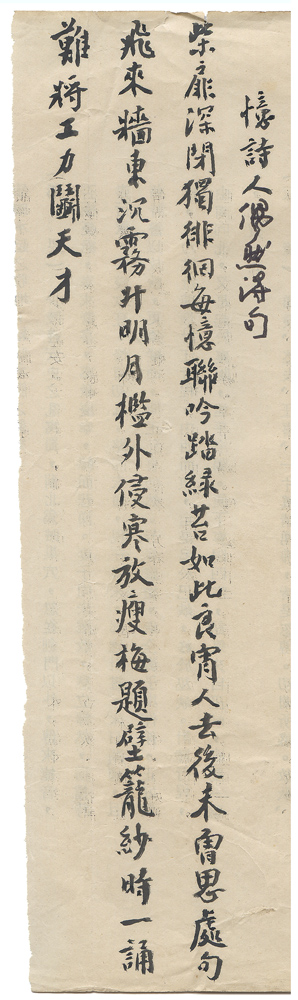 憶詩人偶然得句
柴扉深閉獨徘徊每憶聯吟踏綠苔如此良宵人去後未曾思處句
飛來牆東沉霧升明月檻外侵寒放瘦梅題壁籠紗時一誦
難將工力鬭天才